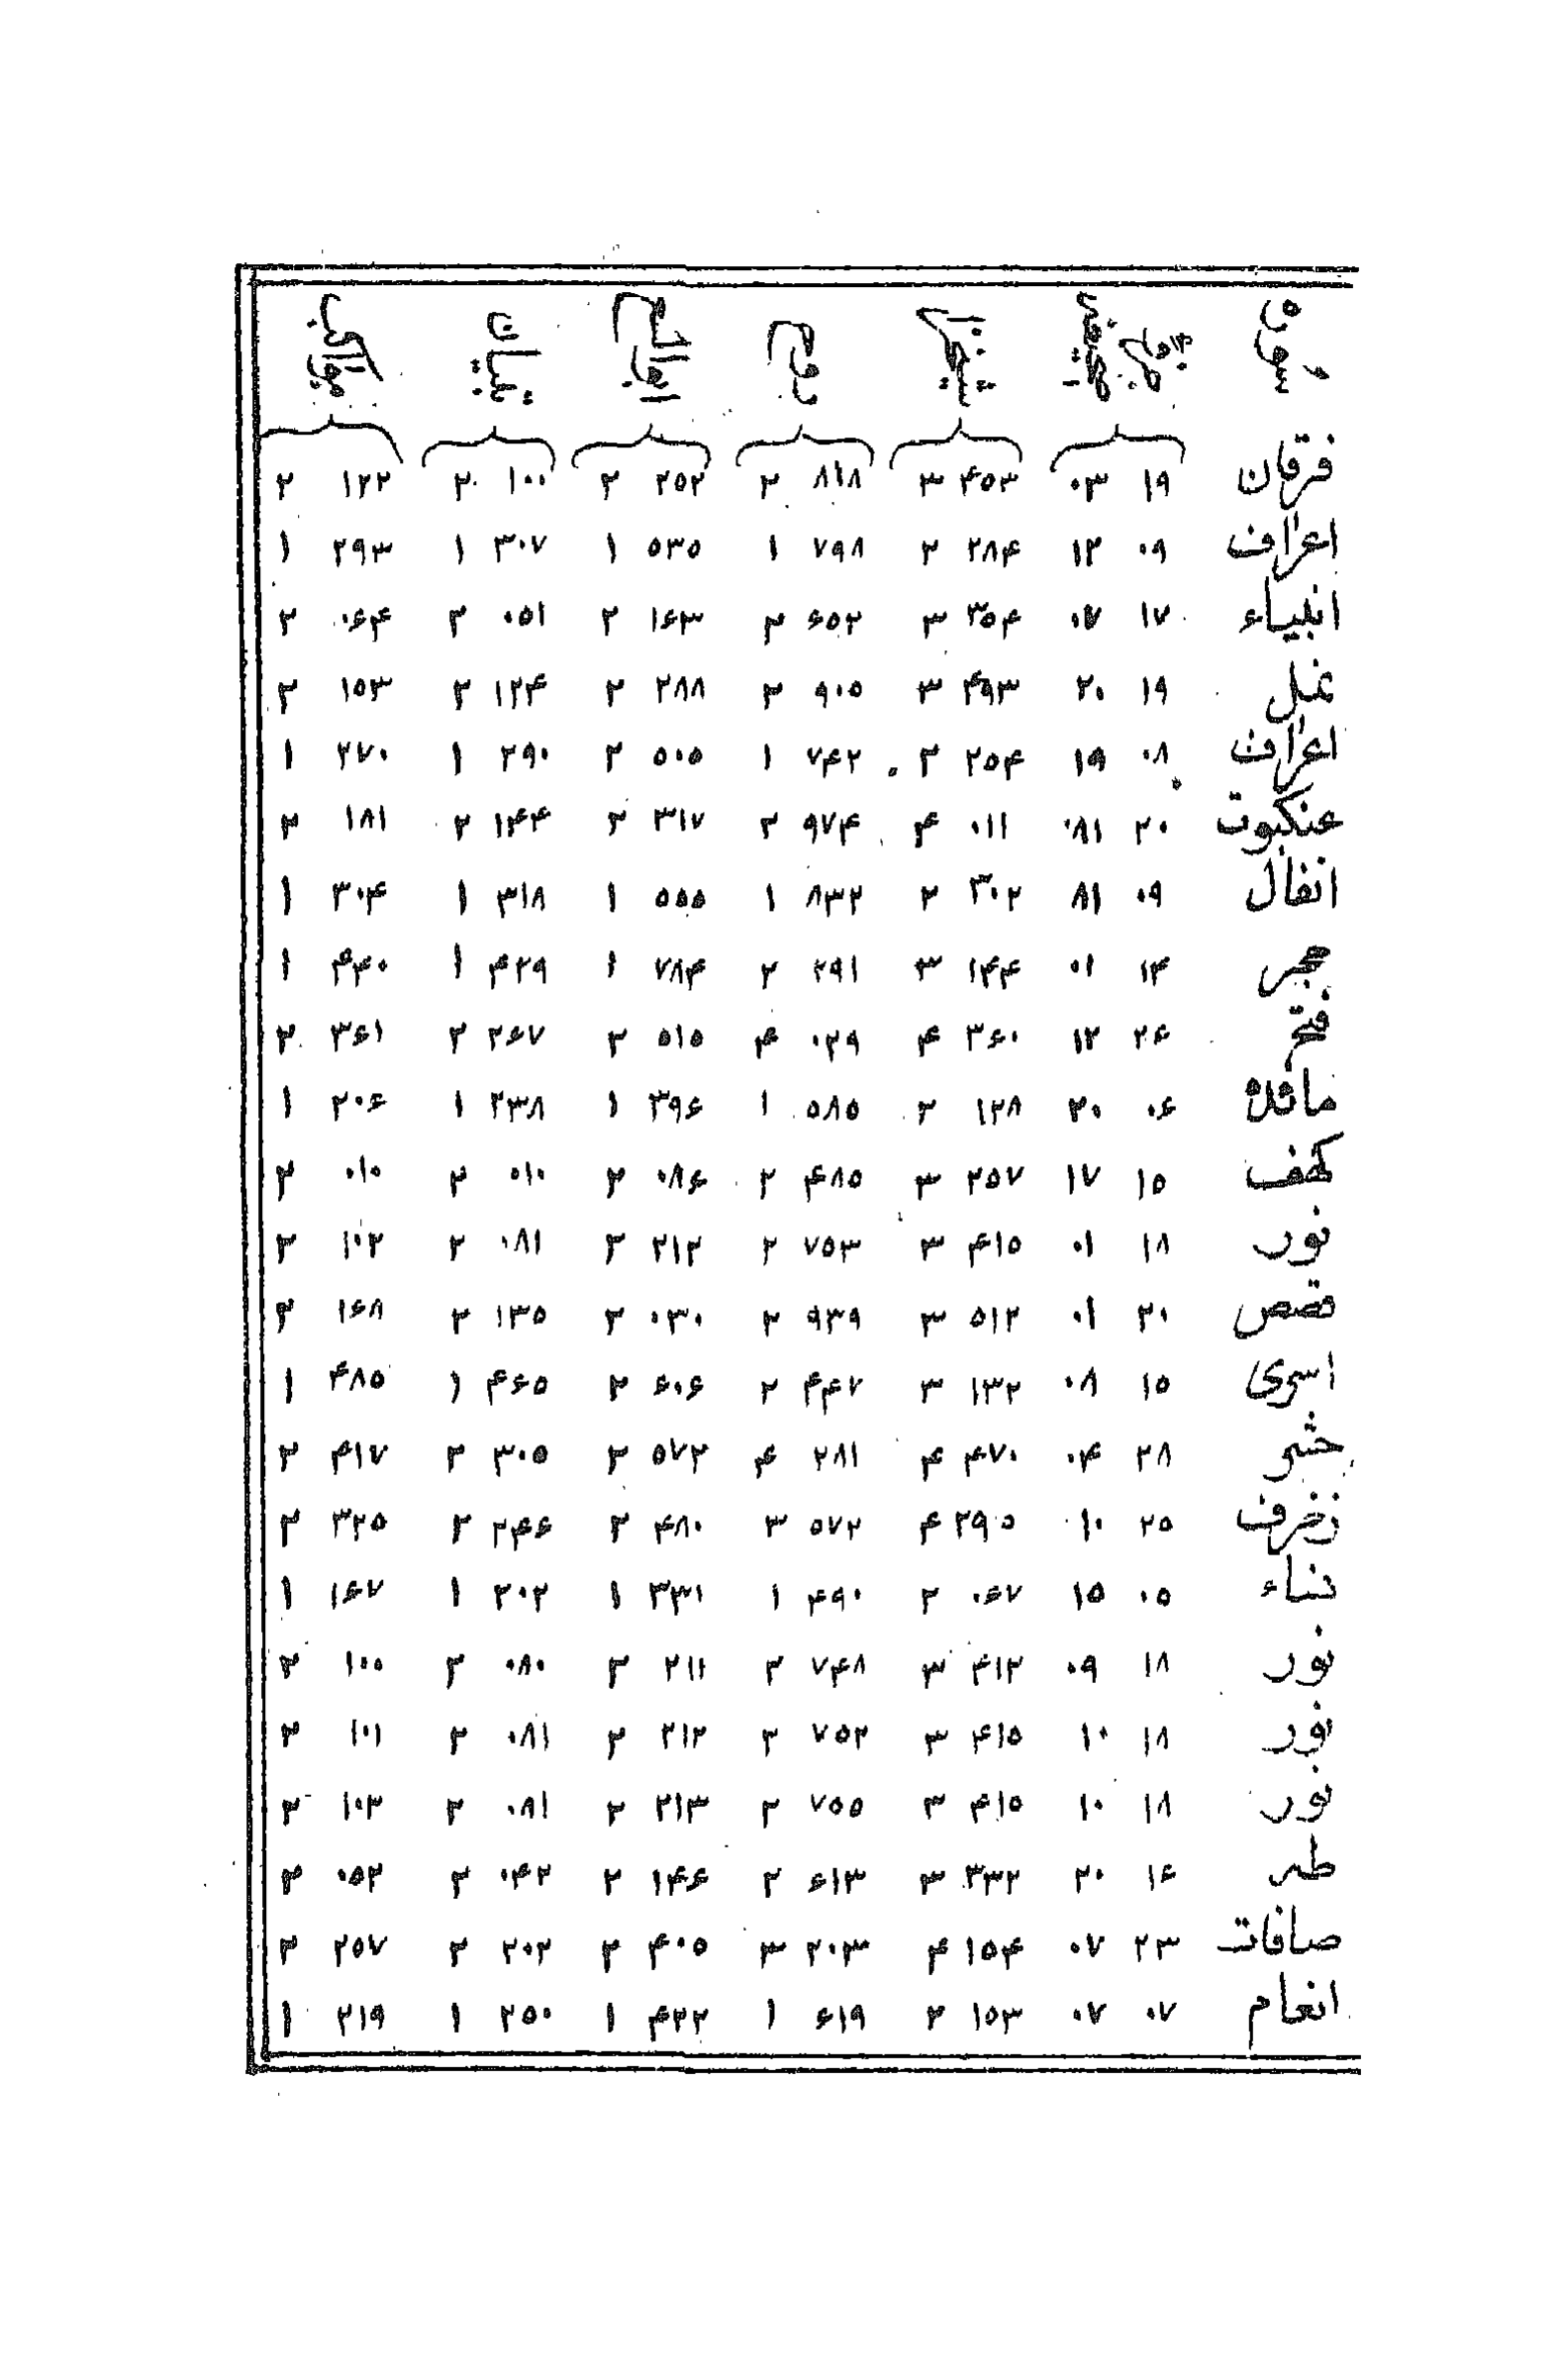 سوره
فرقان ۱۹ ۰۳ ۴۵۳ ۳ ۸۱۸ ۲ ۲۵۲ ۲ ۱۰۰ ۲ ۱۲۲ ۲
اعراف ۰۹ ۱۲ ۲۸۴ ۲ ۷۹۸ ۱ ۵۳۵ ۱ ۳۰۷ ۱ ۲۹۳ ۱
انبیاء ۱۷ ۰۷ ۳۵۴ ۳ ۶۵۲ ۲ ۱۶۳ ۲ ۰۵۱ ۲ ۰۶۴ ۲
نمل ۱۹ ۲۰ ۴۹۳ ۳ ۹۰۵ ۲ ۲۸۸ ۲ ۱۲۴ ۲ ۱۵۳ ۲
اعراف ۰۸ ۱۹ ۲۵۴ ۲ ۷۴۲ ۱ ۵۰۵ ۲ ۲۹۰ ۱ ۲۷۰ ۱
عنکبوت ۲۰ ۰۸۱ ۰۱۱ ۴ ۹۷۴ ۲ ۳۱۷ ۲ ۱۴۴ ۲ ۱۸۱ ۲
انفال ۰۹ ۸۱ ۳۰۲ ۲ ۸۳۲ ۱ ۵۵۵ ۱ ۳۱۸ ۱ ۳۰۴ ۱
حجر ۱۴ ۰۱ ۱۴۴ ۳ ۲۹۱ ۲ ۷۸۴ ۱ ۴۲۹ ۱ ۴۴۰ ۱
فتح ۲۶ ۱۲ ۳۶۰ ۴ ۰۲۹ ۴ ۵۱۵ ۲ ۲۶۷ ۲ ۳۶۱ ۲
مائده ۰۶ ۲۰ ۱۲۸ ۲ ۵۸۵ ۱ ۳۹۶ ۱ ۲۳۸ ۱ ۲۰۶ ۱
کهف ۱۵ ۱۷ ۲۵۷ ۳ ۴۸۵ ۲ ۰۸۶ ۲ ۰۱۰ ۲ ۰۱۰ ۲
نور ۱۸ ۰۱ ۴۱۵ ۳ ۷۵۳ ۲ ۲۱۲ ۲ ۰۸۱ ۲ ۱۰۲ ۲
قصص ۲۰ ۰۱ ۵۱۲ ۳ ۹۳۹ ۲ ۰۳۰ ۲ ۱۳۵ ۲ ۱۶۸ ۲
اسری ۱۵ ۰۸ ۱۳۲ ۳ ۴۴۷ ۲ ۶۰۶ ۲ ۴۶۵ ۱ ۴۸۵ ۱
حشر ۲۸ ۰۴ ۴۷۰ ۴ ۲۸۱ ۴ ۵۷۲ ۲ ۳۰۵ ۲ ۴۱۷ ۲
زخرف ۲۵ ۱۰ ۲۹۵ ۴ ۵۷۲ ۳ ۴۸۰ ۲ ۲۴۶ ۲ ۳۲۵ ۲
نساء ۰۵ ۱۵ ۰۶۷ ۲ ۴۹۰ ۱ ۳۳۱ ۱ ۲۰۲ ۱ ۱۶۷ ۱
نور ۱۸ ۰۹ ۴۱۲ ۳ ۷۴۸ ۲ ۲۱۱ ۲ ۰۸۰ ۲ ۱۰۰ ۲
نور ۱۸ ۱۰ ۴۱۵ ۳ ۷۵۲ ۲ ۲۱۲ ۲ ۰۸۱ ۲ ۱۰۱ ۲
نور ۱۸ ۱۰ ۴۱۵ ۳ ۷۵۵ ۲ ۲۱۳ ۲ ۰۸۱ ۲ ۱۰۳ ۲
طه ۱۶ ۲۰ ۳۳۲ ۳ ۶۱۳ ۲ ۱۴۶ ۲ ۰۴۲ ۲ ۰۵۲ ۲
صافات ۲۳ ۰۷ ۱۵۴ ۴ ۲۰۳ ۳ ۴۰۵ ۲ ۲۰۲ ۲ ۲۵۷ ۲
انعام ۰۷ ۰۷ ۱۵۳ ۲ ۶۱۹ ۱ ۴۲۲ ۱ ۲۵۰ ۱ ۲۱۹ ۱